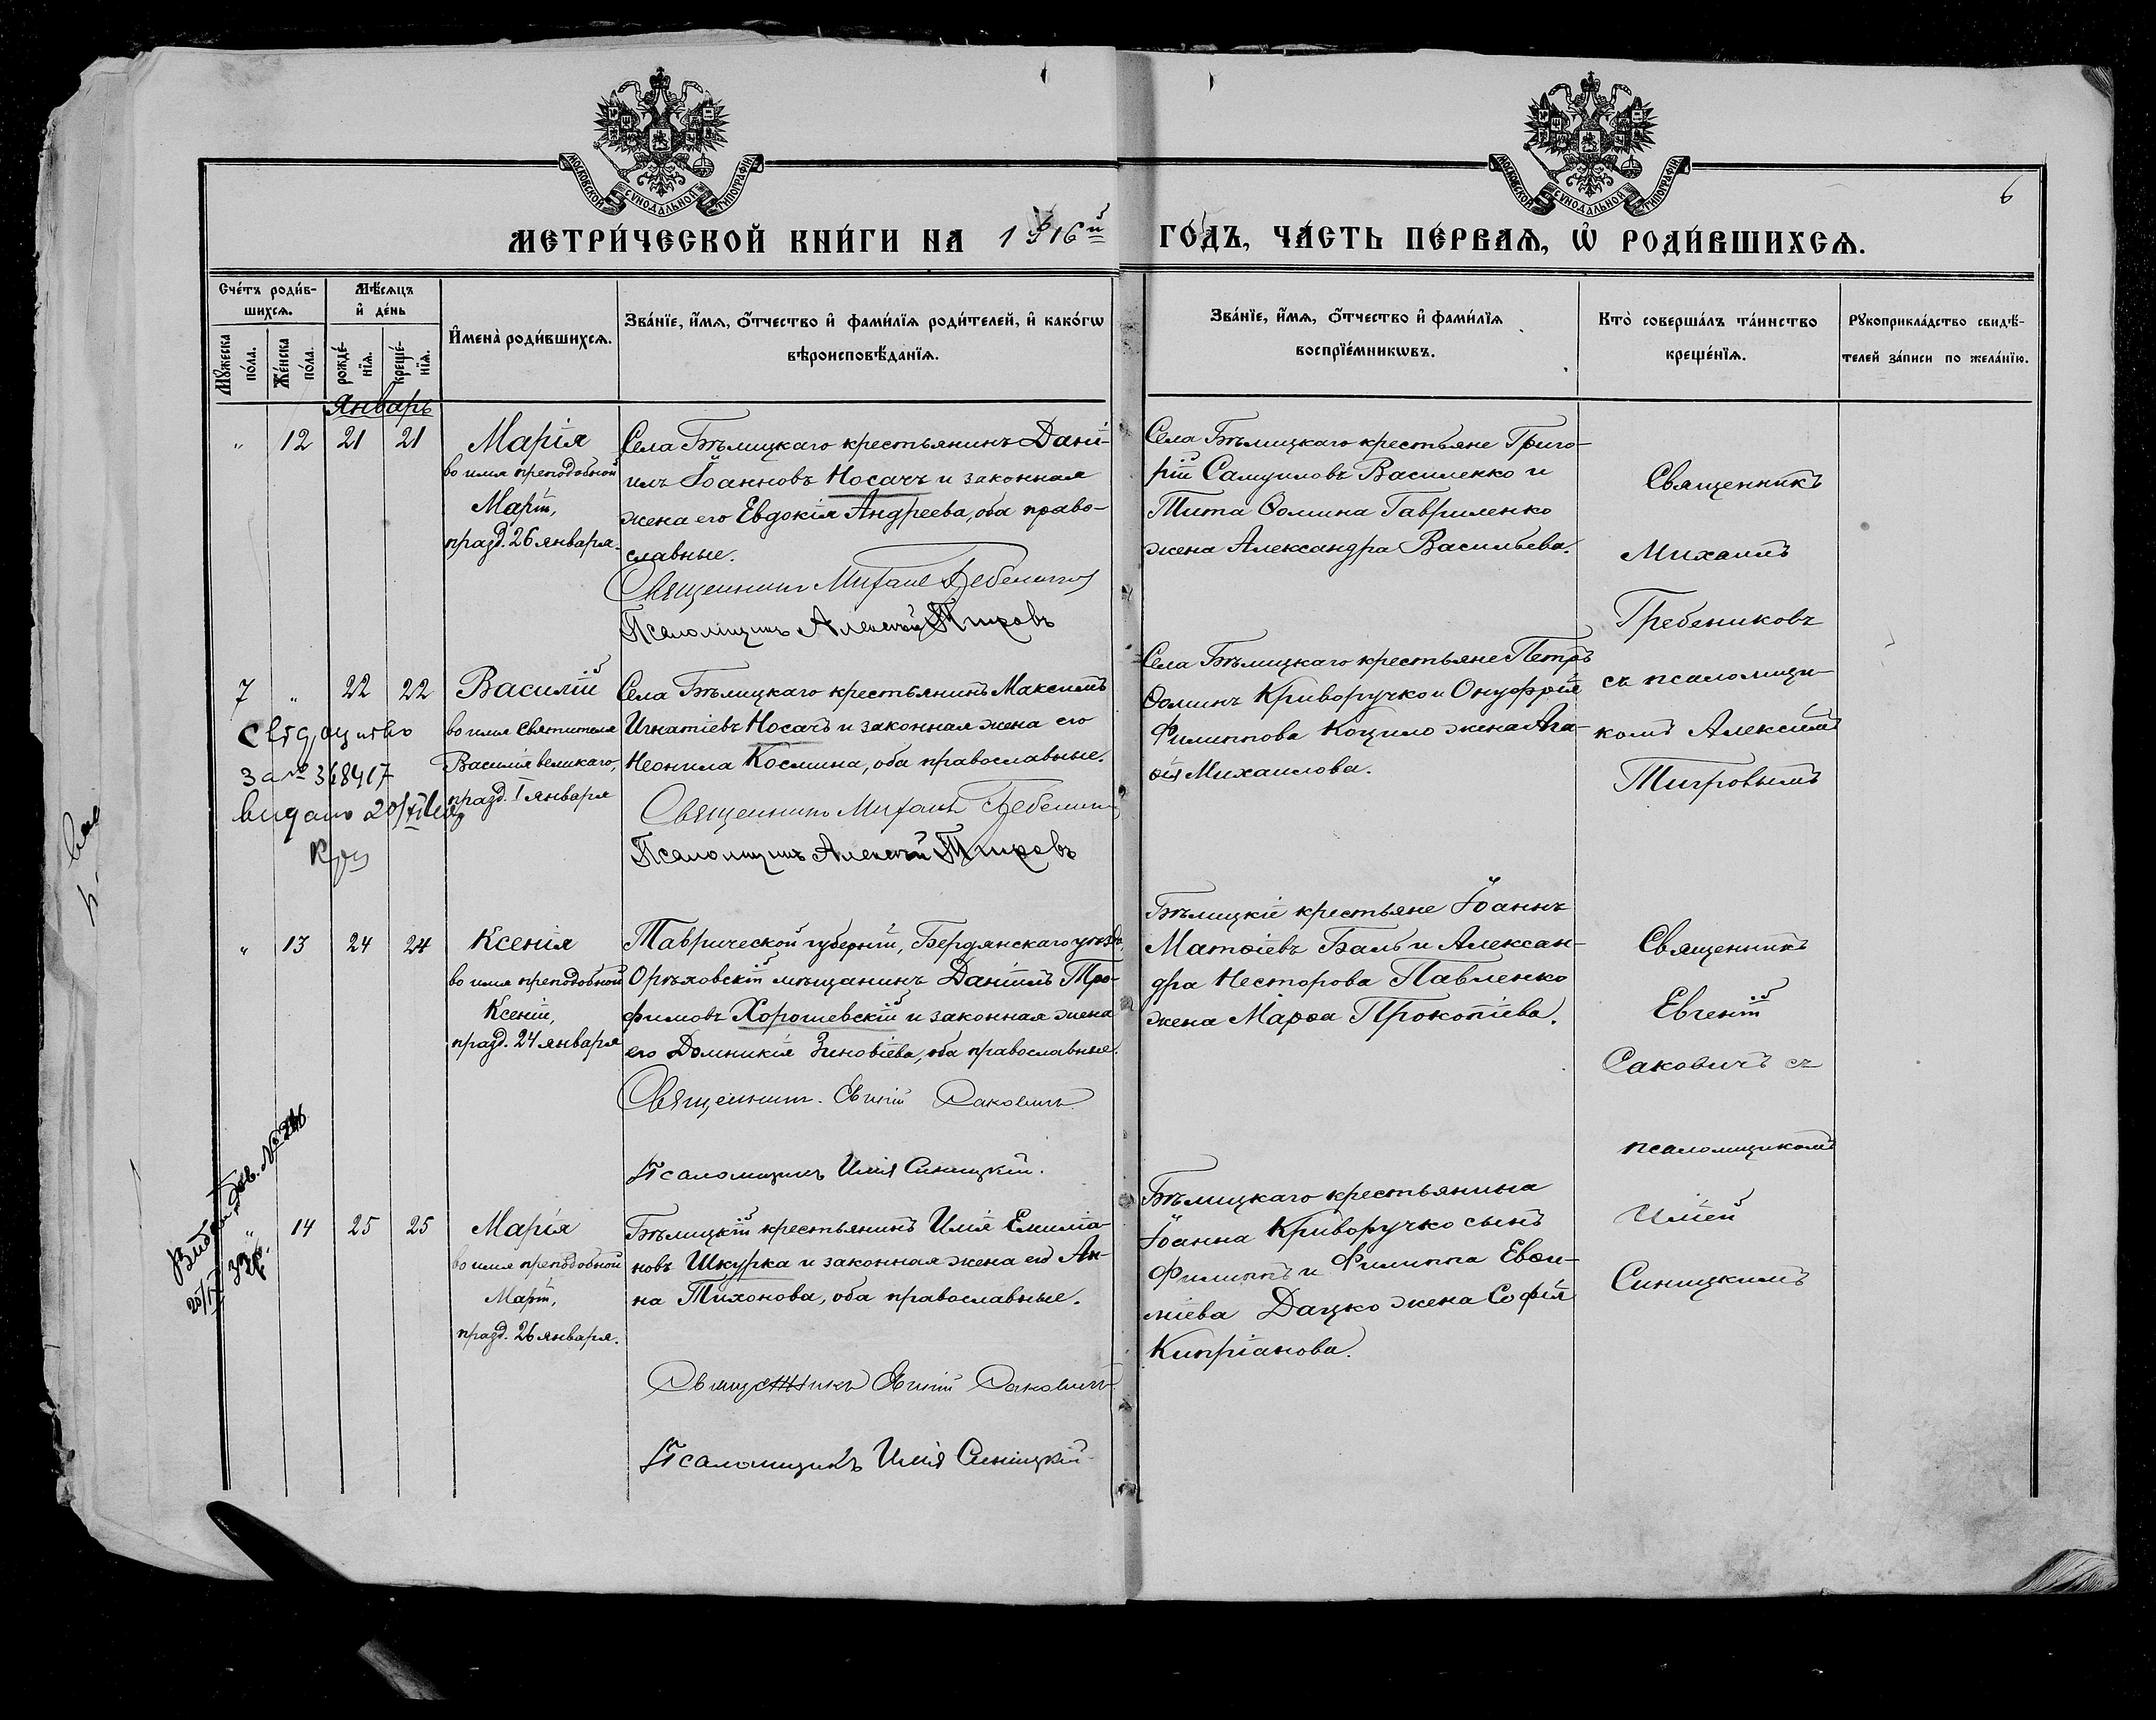 МОСКОВСКОЙ СѴНОДАЛЬНОЙ ТИПОГРАФІИ
МОСКОВСКОЙ СѴНОДАЛЬНОЙ ТИПОГРАФІИ
6
МЕТРИ́ЧЕСКОЙ КНИ́ГИ НА 1916й ГО́ДЪ, ЧА́СТЬ ПЕ́РВАѦ, Ѡ҆ РОДИ́ВШИХСѦ.
Сче́тъ роди́в-
шихсѧ.
Мꙋ́жеска по́ла.
Же́нска по́ла.
Мѣ́сѧцъ
и҆ де́нь
рожде́-
нїѧ.
креще́-
нїѧ.
И҆мена̀ роди́вшихсѧ.
Зва́нїе, и҆́мѧ, ѻ҆́тчество и҆ фами́лїѧ роди́телей, и҆ како́гѡ
вѣроисповѣ́данїѧ.
Зва́нїе, и҆́мѧ, ѻ҆́тчество и҆ фами́лїѧ
воспрїе́мникѡвъ.
Кто̀ соверша́лъ та́инство
креще́нїѧ.
Рꙋкоприкла́дство свидѣ́-
телей за́писи по жела́нїю.
Январь
" 12 21 21
Марія
во имя преподобной
Маріи,
празд. 26 января.
Села Бѣлицкаго крестьянинъ Дані-
илъ Іоанновъ Носачъ и законная
жена его Евдокія Андреева, оба право-
славные.
Священникъ Михаилъ Гребениковъ
Псаломщикъ Алексій Тигровъ
Села Бѣлицкаго крестьяне Григо-
рій Самуиловъ Василенко и
Тита Ѳомина Гавриленко
жена Александра Васильева.
Священникъ
Михаилъ
Гребениковъ
съ псаломщи-
комъ Алексіемъ
Тигровымъ
7 " 22 22
Свідоцтво
за № 368417
видано 20/
Василій
во имя Святителя
Василія великаго,
празд. 1 января
Села Бѣлицкаго крестьянинъ Максимъ
Игнатіевъ Носачъ и законная жена его
Неонила Космина, оба православные.
Священникъ Михаилъ Гребеник
Псаломщикъ Алексій Тигровъ
Села Бѣлицкаго крестьяне Петръ
Ѳоминъ Криворучко и Онуфрія
Филиппова Коцило жена Ага-
ѳія Михаилова.
" 13 24 24
Ксенія
во имя преподобной
Ксеніи,
празд. 24 января
Таврической губерніи, Бердянскаго уѣзда,
Орѣховскій мѣщанинъ Даніилъ Тро-
фимовъ Хорошевскій и законная жена
его Домникія Зиновіева, оба православные.
Священникъ Евгеній Саковичъ
Псаломщикъ Илія Синицкій.
Бѣлицкіе крестьяне Іоаннъ
Матѳіевъ Баль и Алексан-
дра Несторова Павленко
жена Марѳа Прокопіева.
Священникъ
Евгеній
Саковичъ съ
псаломщикомъ
Иліей
Синицкимъ
" 14 25 25
Марія
во имя преподобной
Маріи,
празд. 26 января.
Бѣлицкій крестьянинъ Илія Емиліа-
новъ Шкурка и законная жена его Ан-
на Тихонова, оба православные.
Священникъ Евгеній Саковичъ
Псаломщикъ Илія Синицкій
Бѣлицкаго крестьянина
Іоанна Криворучко сынъ
Филиппъ и Филиппа Евѳи-
міева Дацко жена Софія
Кипріанова.